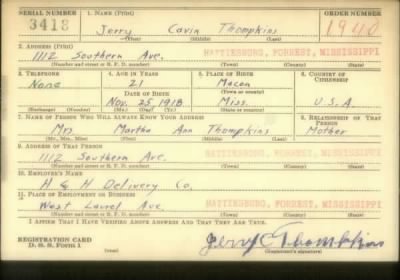 SERIAL NUMBER 1. NAME (Print) ORDER NUMBER
3418 Jerry Cavin Thompkins 1940
2. ADDRESS (Print)
1112 Southern Ave. HATTIESBURG, FORREST, MISSISSIPPI
(Number and street or R. F. D. number) (Town) (County) (State)
3. TELEPHONE 4. AGE IN YEARS 5. PLACE OF BIRTH 6. COUNTRY OF CITIZENSHIP
None 21 Macon
DATE OF BIRTH (Town or county)
Nov. 25 1918 Miss. U.S.A.
(Exchange) (Number) (Mo.) (Day) (Yr.) (State or country)
7. NAME OF PERSON WHO WILL ALWAYS KNOW YOUR ADDRESS 8. RELATIONSHIP OF THAT PERSON
Mrs Martha Ann Thompkins Mother
(Mr., Mrs., Miss) (First) (Middle) (Last)
9. ADDRESS OF THAT PERSON
1112 Southern Ave. HATTIESBURG, FORREST, MISSISSIPPI
(Number and street or R. F. D. number) (Town) (County) (State)
10. EMPLOYER'S NAME
H & H Delivery Co.
11. PLACE OF EMPLOYMENT OR BUSINESS
West Laurel Ave HATTIESBURG, FORREST, MISSISSIPPI
(Number and street or R. F. D. number) (Town) (County) (State)
I AFFIRM THAT I HAVE VERIFIED ABOVE ANSWERS AND THAT THEY ARE TRUE.
REGISTRATION CARD
D. S. S. Form 1 Jerry C Thompkins
(Registrant's signature)